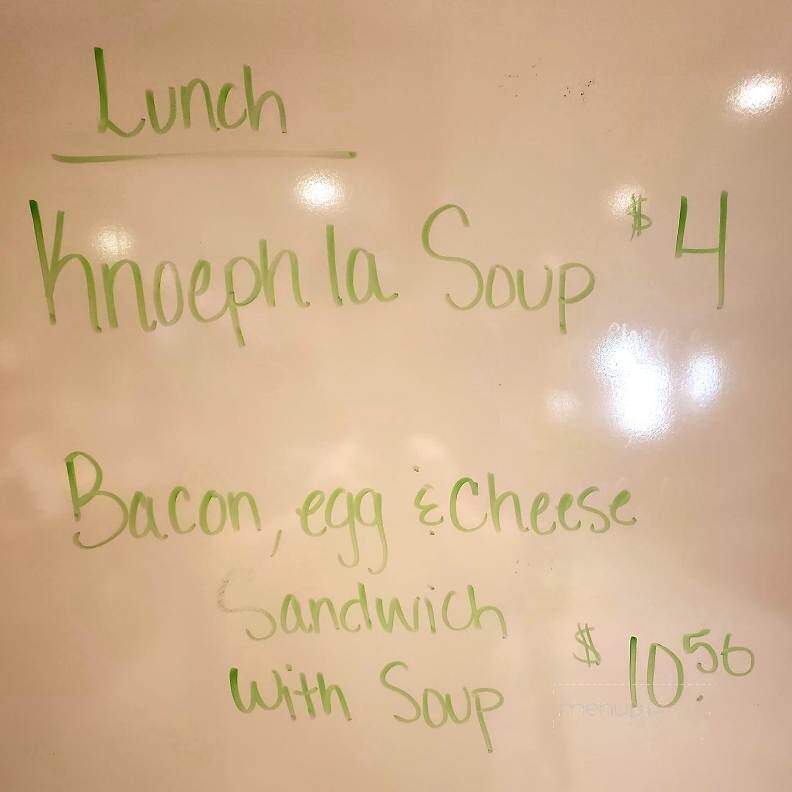 Lunch
Knoephla Soup $4
Bacon, egg & Cheese
Sandwich
With Soup $10.50
menupix